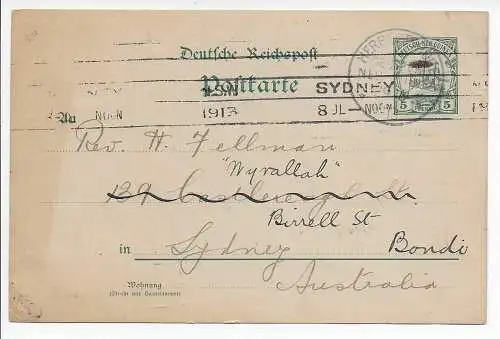 Deutsche Reichspost
Postkarte
SYDNEY
NOON 1913 8 JL - NOON
5 5
An
Rev. H. Fellman
"Wyvallah"
139 Castlereagh St.
Birrell St
in Sydney Bondi
Australia
Wohnung
(Straße und Hausnummer)